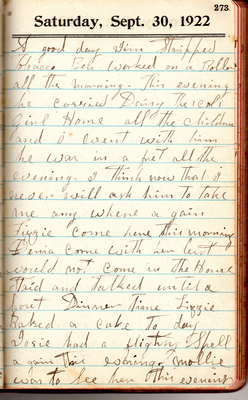 273
Saturday, Sept. 30, 1922
A good day Jim Stripped
Tobacco Bob worked on a Roller
all the morning. This evening
he carried Daisy
Girl Home all the children
and I went with him
he was in a fret all the
evening. I think now that I
never will ask him to take
me any where a gain
Lizzie Come here this morning
Come with her but
would not Come in the House
Staid and talked until a
bout Dinner Time Lizzie
Baked a cake to day
Josie had a flighty Spell
a gain this evening. Mollie
was to See her this evening